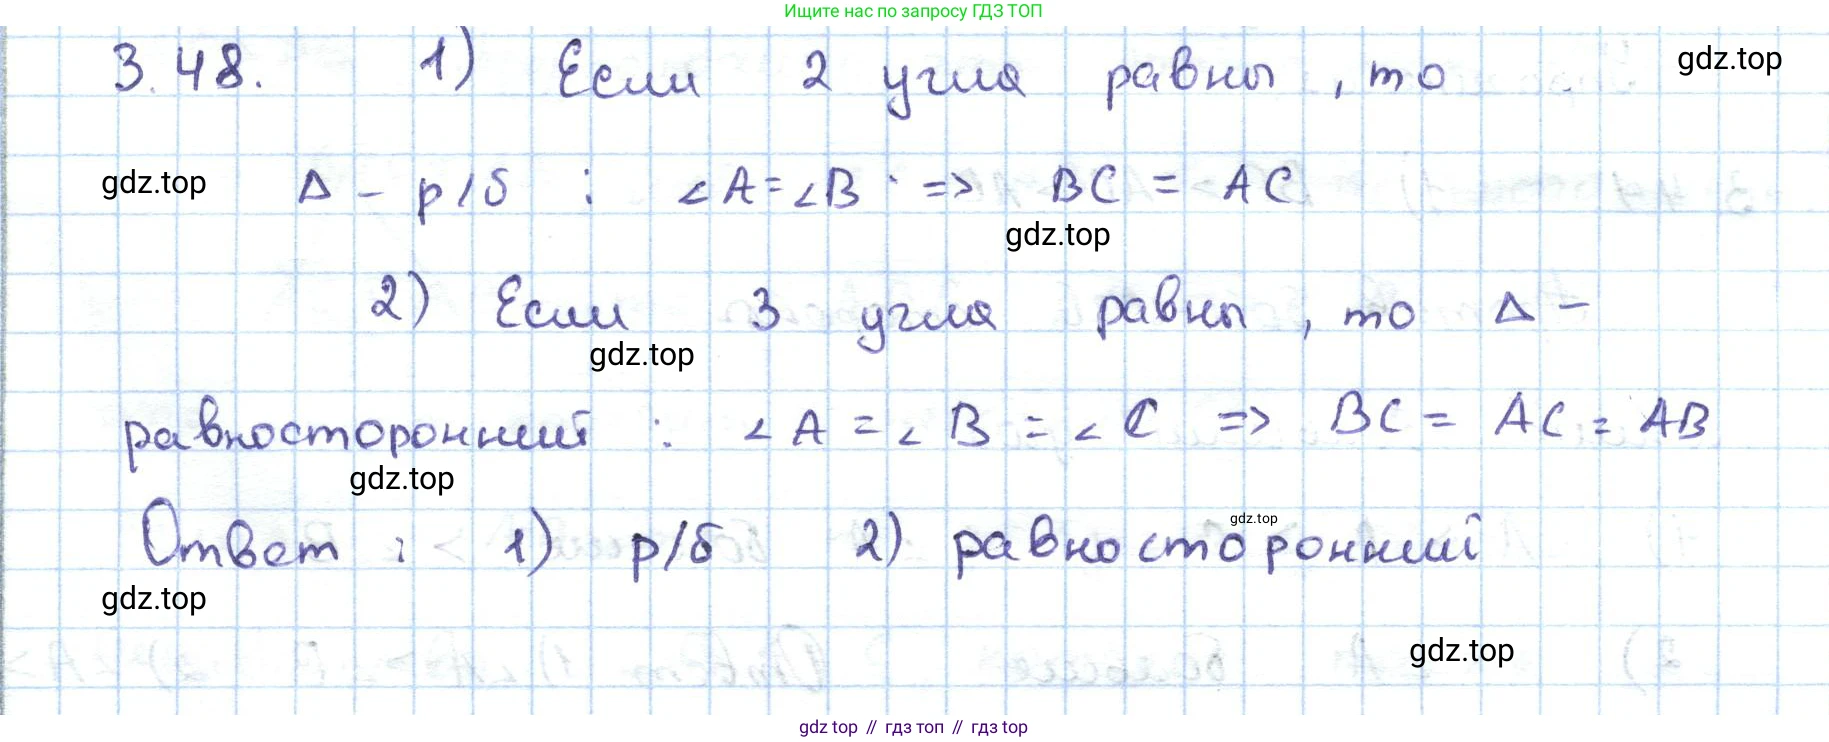 Ищите нас по запросу ГДЗ ТОП
3.48. 1) Если 2 угла равны, то
gdz.top
gdz.top
Δ – р/б : ∠A = ∠B => BC = AC
gdz.top
2) Если 3 угла равны, то Δ –
gdz.top
равносторонний : ∠A = ∠B = ∠C => BC = AC = AB
gdz.top
gdz.top
Ответ : 1) р/б 2) равносторонний
gdz.top
gdz.top
gdz top // гдз топ // гдз top